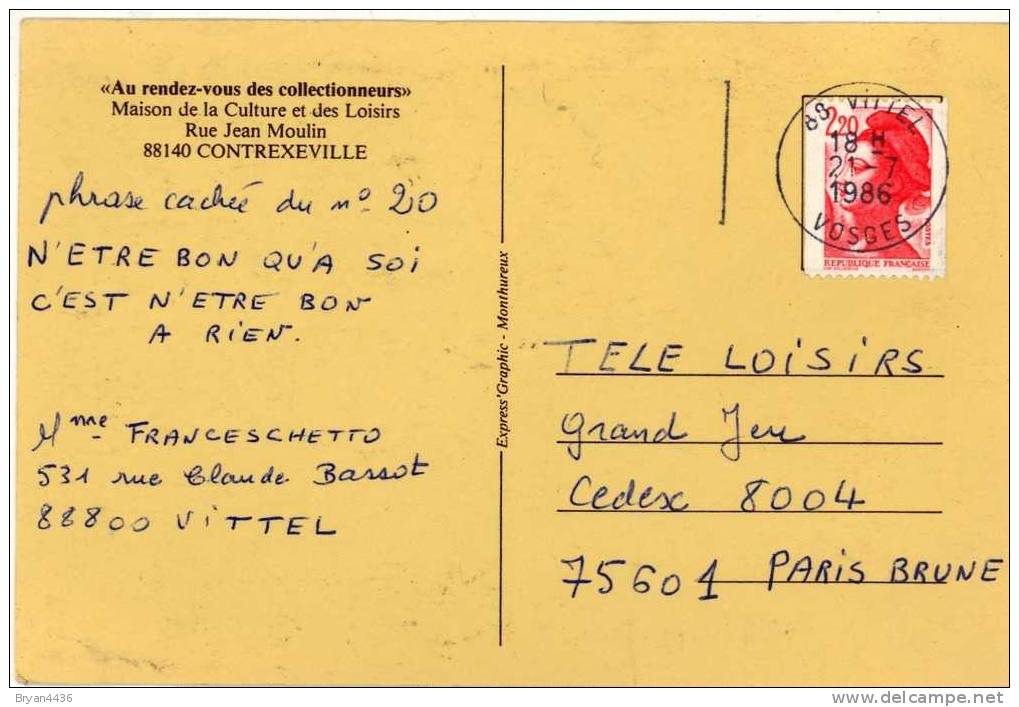 «Au rendez-vous des collectionneurs»
Maison de la Culture et des Loisirs
Rue Jean Moulin
88140 CONTREXEVILLE
phrase cachée du nº 20
N'ETRE BON QU'A SOI
C'EST N'ETRE BON
A RIEN.
Mme FRANCESCHETTO
531 rue Claude Bassot
88800 VITTEL
Express'Graphic - Monthureux
88 VITTEL
18 H
21-7
1986
VOSGES
2,20
POSTES
REPUBLIQUE FRANÇAISE
TELE LOISIRS
Grand Jeu
Cedex 8004
75601 PARIS BRUNE
Bryan4436
delcampe.net